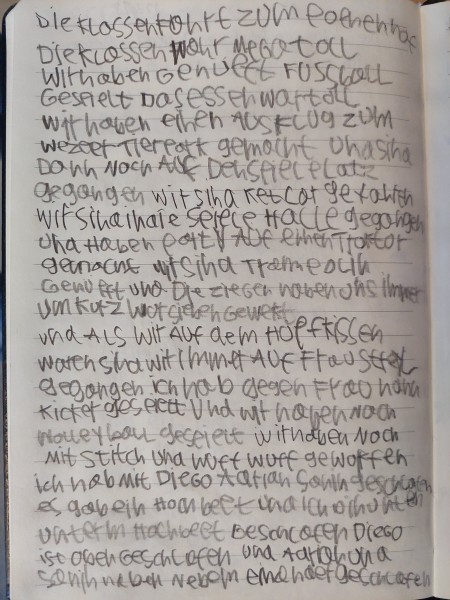 Die klassenfohrt zum Ponenhof
Die klassen wohr megatoll
Wir haben genuett Fussball
geseielt Das essen war toll
wir haben einen Ausflug zum
wezeer Tierpark gemacht und sind
Dann noch Auf Den spieleplatz
gegangen wir sind ketcar gefahren
wir sind in die seiele Halle gegangen
und Haben party Auf einen Traktor
gemacht wir sind Trampolin
und Die ziegen haben uns immer
um kurz vor sieben geweckt
und Als wir Auf dem Hüpfkissen
waren sind wir immer Auf Frau
gegangen ich hab gegen Frau hahn
kicker geseielt und wir haben noch
volleyball geseielt wir haben noch
mit Stitch und wuff wuff geworfen
ich hab mit Diego Adrian Sonin geschlafen
es gab ein Hochbeet und ich bin unten
unterm Hochbeet geschlafen Diego
ist oben geschlafen und Adrian und
Sonin haben nebem einander geschlafen